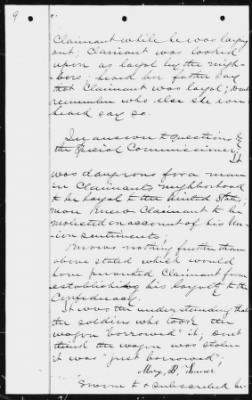 9
Claimant while he was laying
out; Claimant was looked
upon as loyal by the neigh-
bors; heard her father say
that Claimant was loyal; don't
remember who else she ever
heard say so.
In answer to questions by
the Special Commissioner, It
was dangerous for a man
in Claimant's neighborhood
to be loyal to the United States;
never knew Claimant to be
molested on account of his Un-
ion sentiments;
knows nothing further than
above stated which would
have prevented Claimant from
establishing his loyalty to the
Confederacy.
It was the understanding that
the soldiers who took the
wagon "borrowed" it; don't
think the wagon was stolen
it was "just borrowed";
Mary, D.
Sworn to & subscribed be-